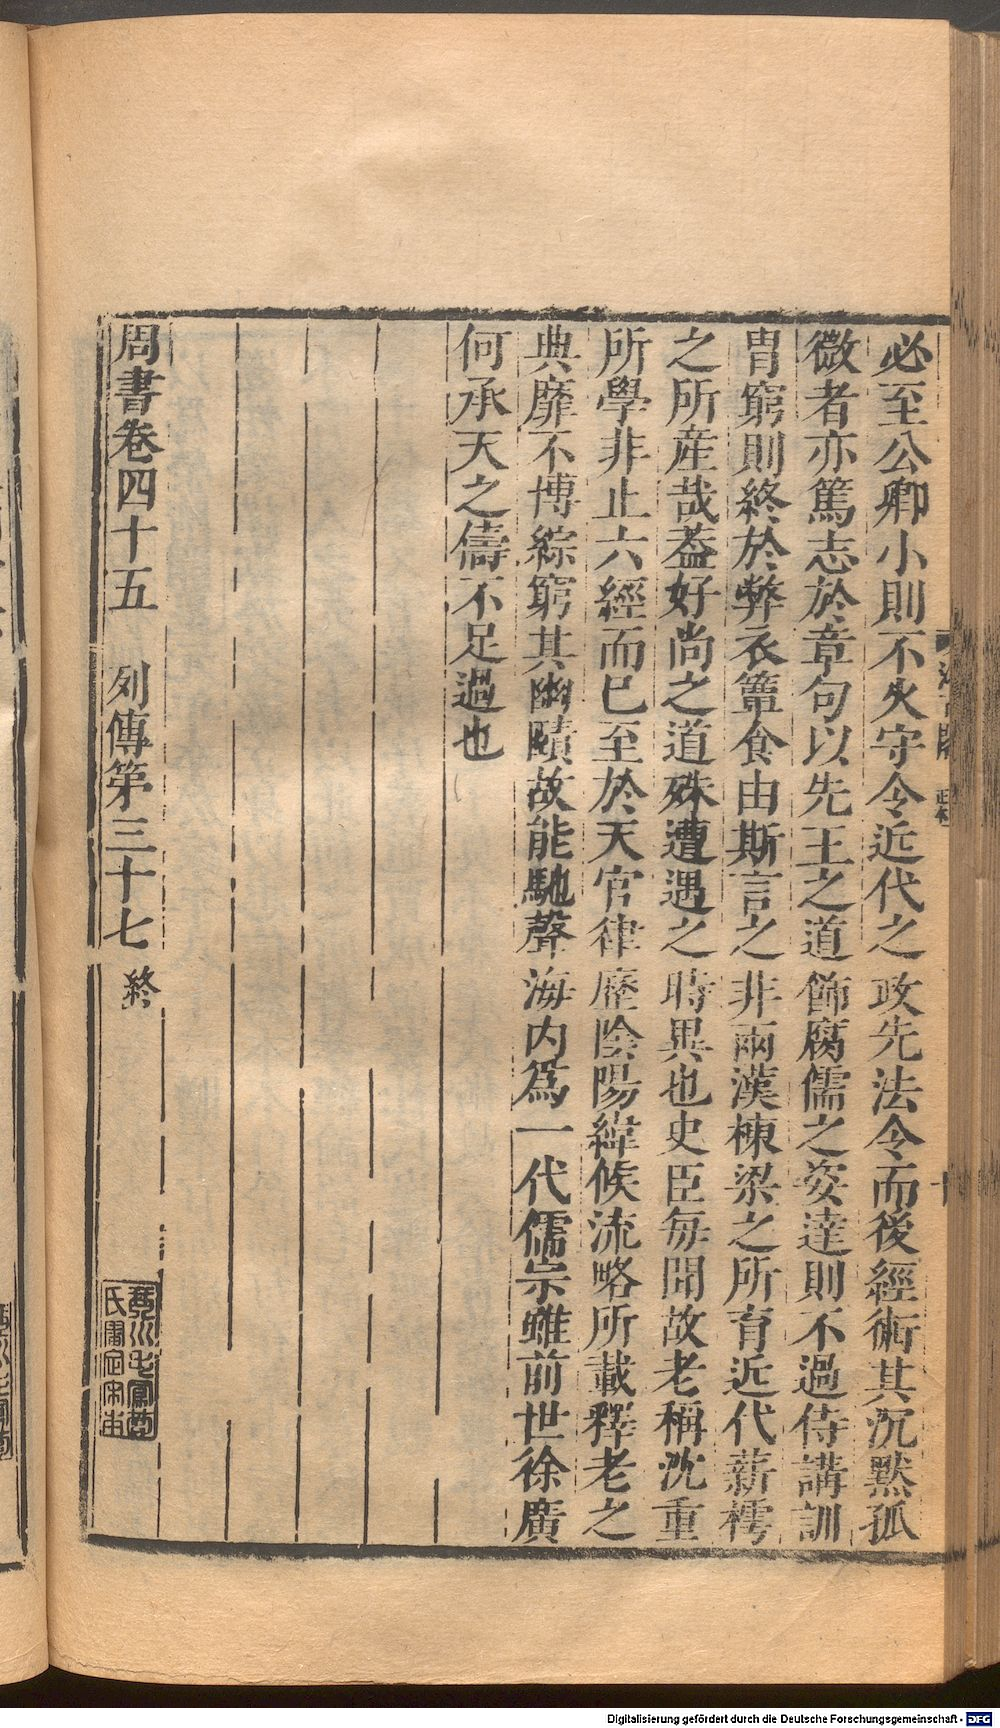 必至公卿小則不火守令近代之政先法令而後經術其沉黙孤
微者亦篤志於章句以先王之道飾腐儒之姿達則不過侍講訓
胄窮則終於弊衣簞食由斯言之非兩漢棟梁之所育近代薪樗
之所産哉葢好尚之道殊遭遇之時異也史臣每聞故老稱沈重
所學非止六經而巳至於天官律歷陰陽緯候流略所載釋老之
典靡不博綜窮其幽賾故能馳聲海内爲一代儒宗雖前世徐廣
何承天之儔不足過也
周書卷四十五　列傳第三十七終
琴川毛鳳苞
氏審定宋本
Digitalisierung gefördert durch die Deutsche Forschungsgemeinschaft - DFG